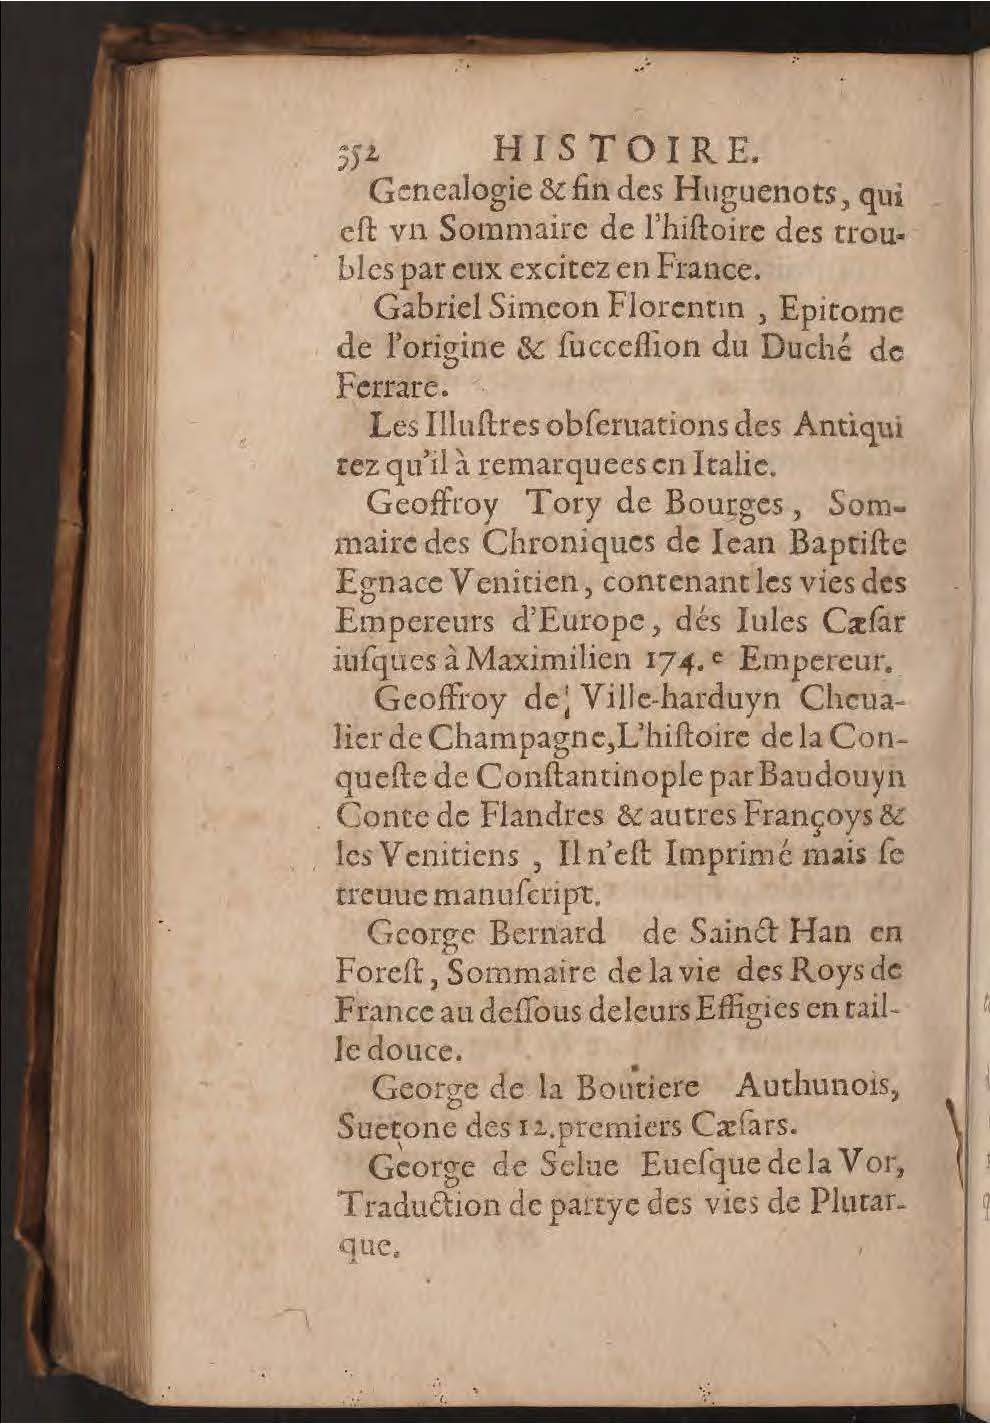 352 HISTOIRE.
Genealogie & fin des Huguenots, qui
eſt vn Sommaire de l'hiſtoire des trou-
bles par eux excitez en France.
Gabriel Simeon Florentin , Epitome
de l'origine & ſucceſſion du Duché de
Ferrare.
Les Illuſtres obſeruations des Antiqui
tez qu'il à remarquees en Italie.
Geoffroy Tory de Bourges , Som-
maire des Chroniques de Iean Baptiſte
Egnace Venitien , contenant les vies des
Empereurs d'Europe , dés Iules Cæſar
iuſques à Maximilien 174.e Empereur.
Geoffroy de Ville-harduyn Cheua-
lier de Champagne,L'hiſtoire de la Con-
queſte de Conſtantinople par Baudouyn
Conte de Flandres & autres Françoys &
les Venitiens , Il n'eſt Imprimé mais ſe
treuue manuſcript.
George Bernard de Sainct Han en
Foreſt , Sommaire de la vie des Roys de
France au deſſous de leurs Effigies en tail-
le douce.
George de la Boutiere Authunois,
Suetone des 12.premiers Cæſars.
George de Selue Eueſque de la Vor,
Traduction de partye des vies de Plutar-
que.